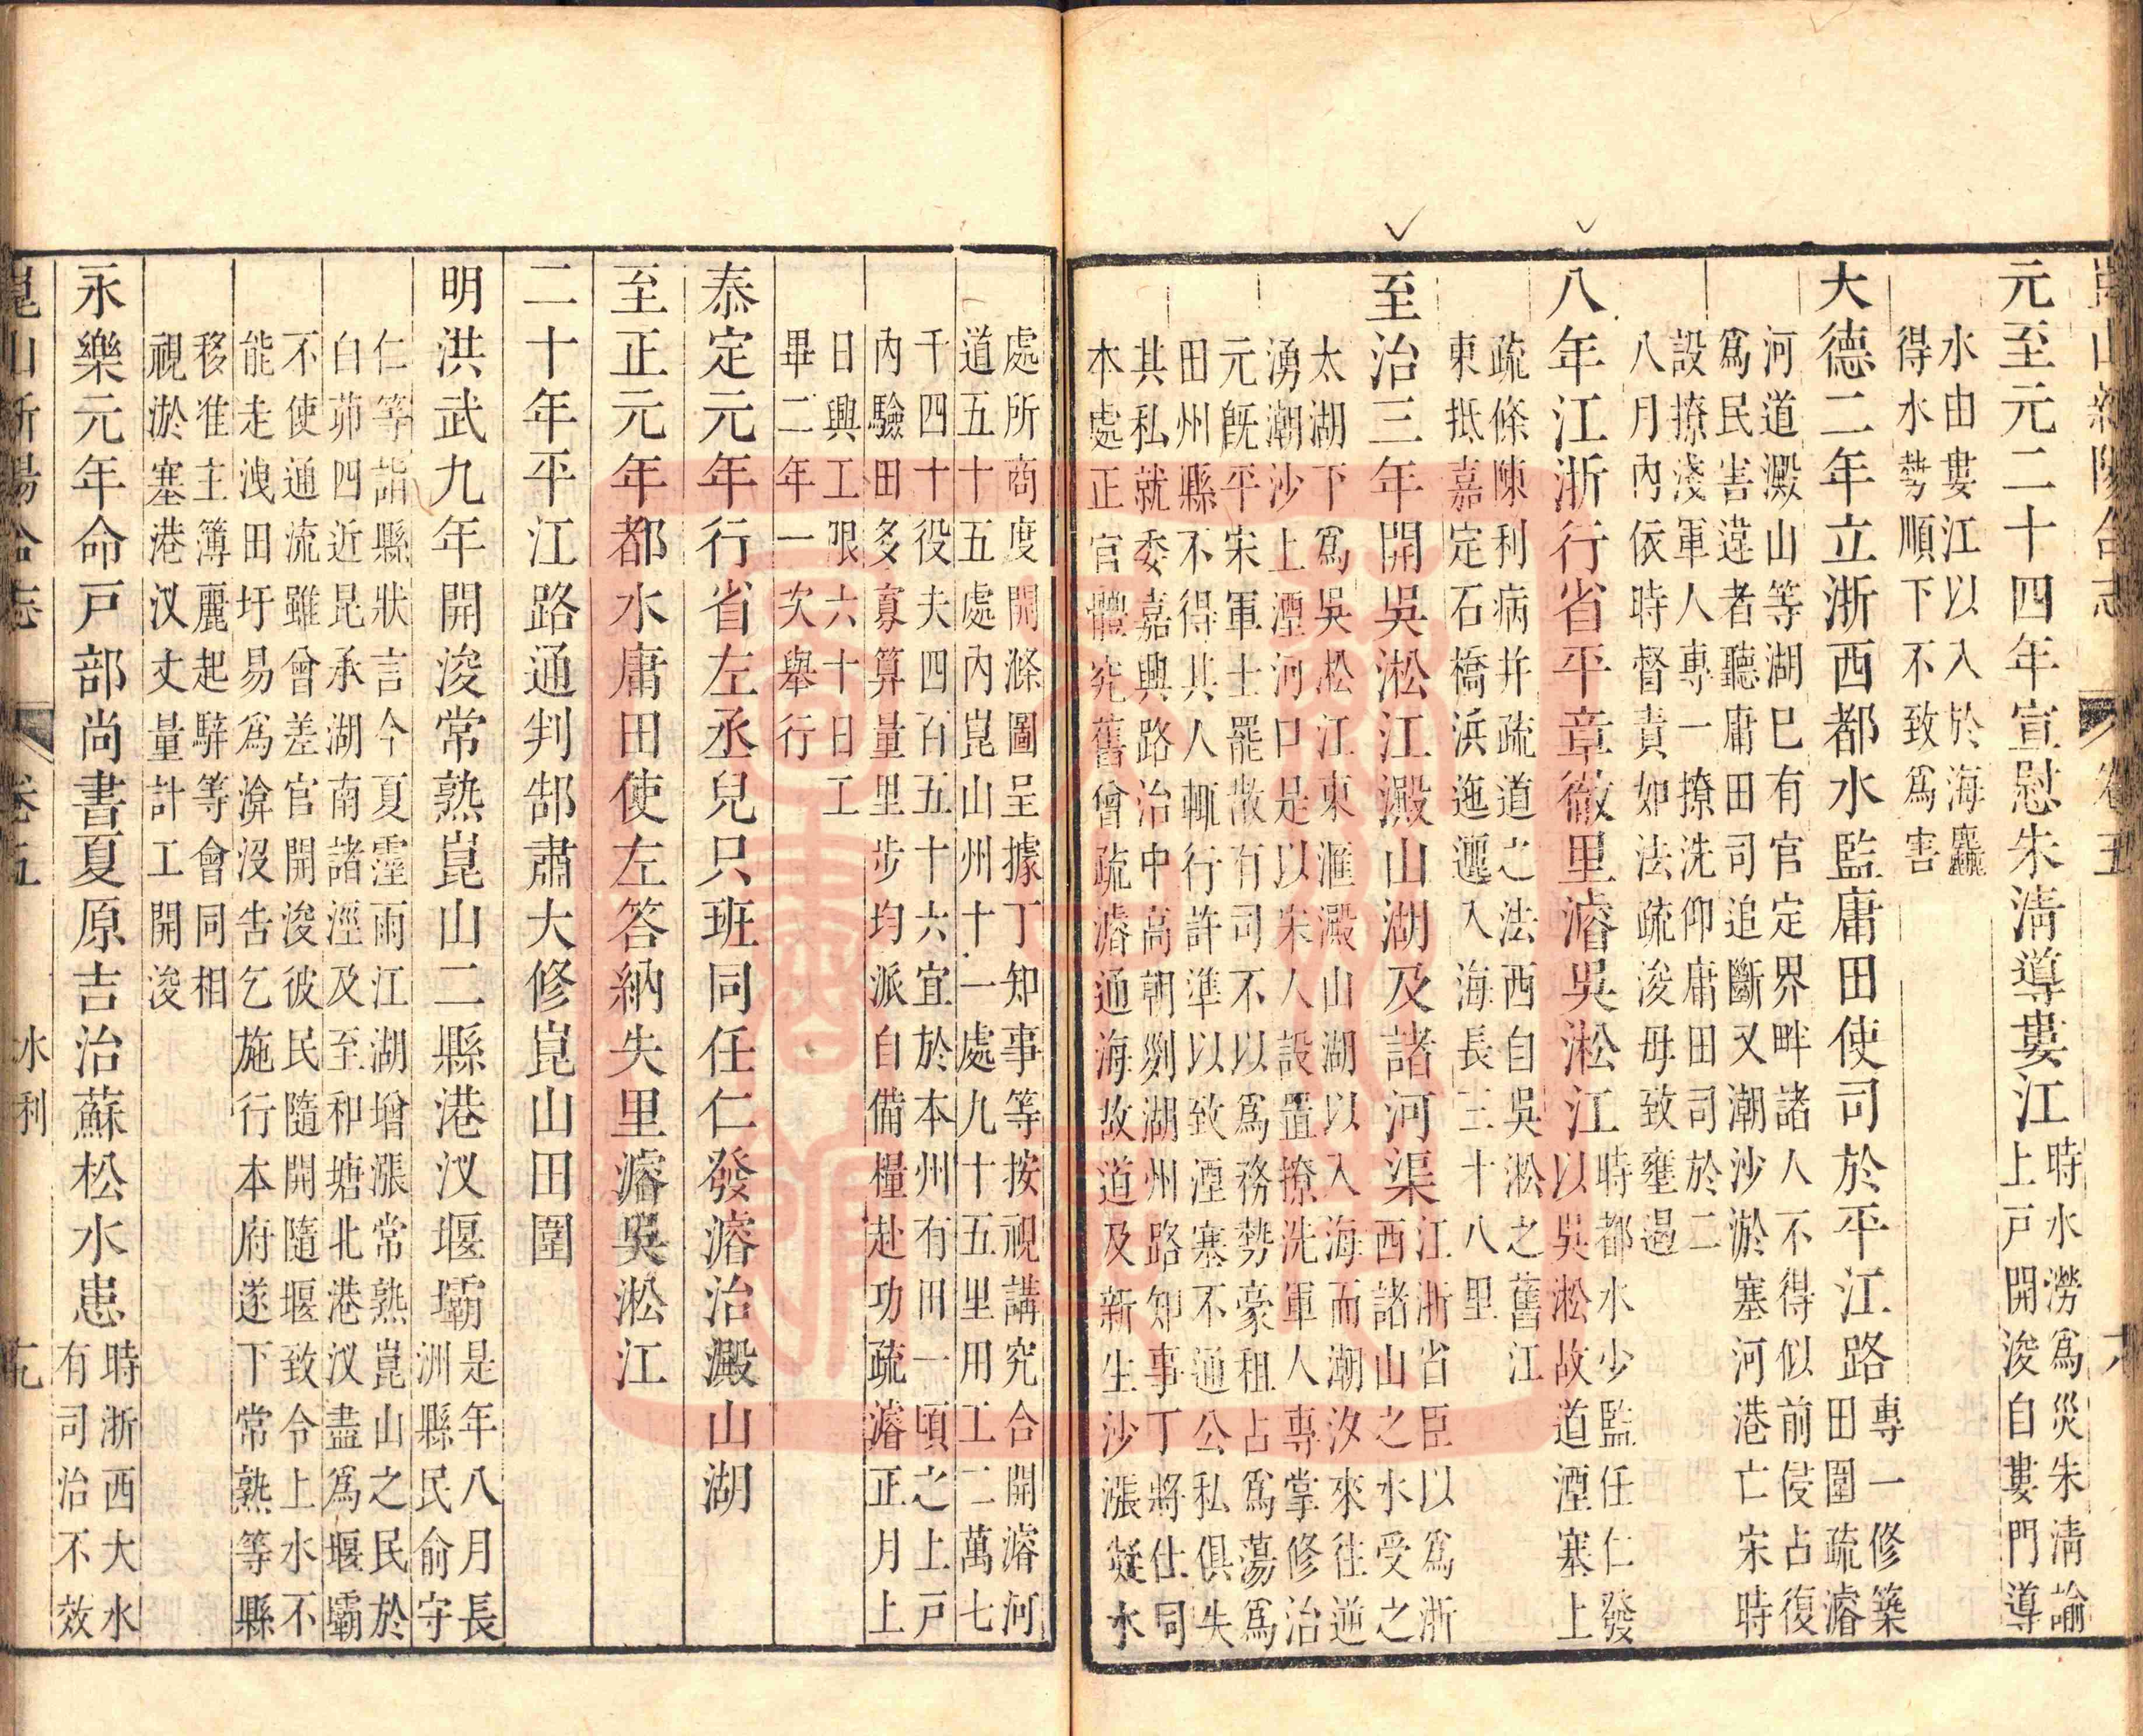 崑山新陽合志 卷五 六
元至元二十四年宣慰朱淸導婁江
時水澇爲災朱淸諭
上戸開浚自婁門導
水由婁江以入於海麤
得水勢順下不致爲害
大德二年立浙西都水監庸田使司於平江路
專一修築
田圍疏濬
河道澱山等湖巳有官定界畔諸人不得似前侵占復
爲民害違者聽庸田司追斷又潮沙淤塞河港亡宋時
設撩淺軍人專一撩洗仰庸田司於二
八月內依時督責如法疏浚毋致壅遏
八年江浙行省平章徹里濬吳淞江
時都水少監任仁發
以吳淞故道湮塞上
疏條陳利病并疏道之法西自吳淞之舊江
東抵嘉定石橋浜迤邐入海長三十八里
至治三年開吳淞江澱山湖及諸河渠
江浙省臣以爲浙
西諸山之水受之
太湖下爲吳淞江東滙澱山湖以入海而潮汐來往逆
湧潮沙上湮河口是以宋人設置撩洗軍人專掌修治
元旣平宋軍士罷散有司不以爲務勢豪租占爲蕩爲
田州縣不得共人輒行許準以致湮塞不通公私俱失
其私就委嘉興路治中高朝列湖州路知事丁將仕司
本處正官體究舊曾疏濬通海故道及新生沙漲礙水
處所商度開滌圖呈據丁知事等按視講究合開濬河
道五十五處內崑山州十一處九十五里用工二萬七
千四十役夫四百五十六宜於本州有田一頃之上戸
內驗田多寡算量里步均派自備糧赴功疏濬正月上
日興工限六十日工
畢二年一次舉行
泰定元年行省左丞兒只班同任仁發濬治澱山湖
至正元年都水庸田使左答納失里濬吳淞江
二十年平江路通判郜肅大修崑山田圍
明洪武九年開浚常熟崑山二縣港汊堰壩
是年八月長
洲縣民俞守
仁等詣縣狀言今夏霪雨江湖增漲常熟崑山之民於
白茆四近昆承湖南諸涇及至和塘北港汊盡爲堰壩
不使通流雖曾差官開浚彼民隨開隨堰致令上水不
能走洩田圩易爲渰沒吿乞施行本府遂下常熟等縣
移准主簿麗起騂等會同相
視淤塞港汊丈量計工開浚
永樂元年命戸部尚書夏原吉治蘇松水患
時浙西大水
有司治不效
崑山新陽合志 卷五 水利 九